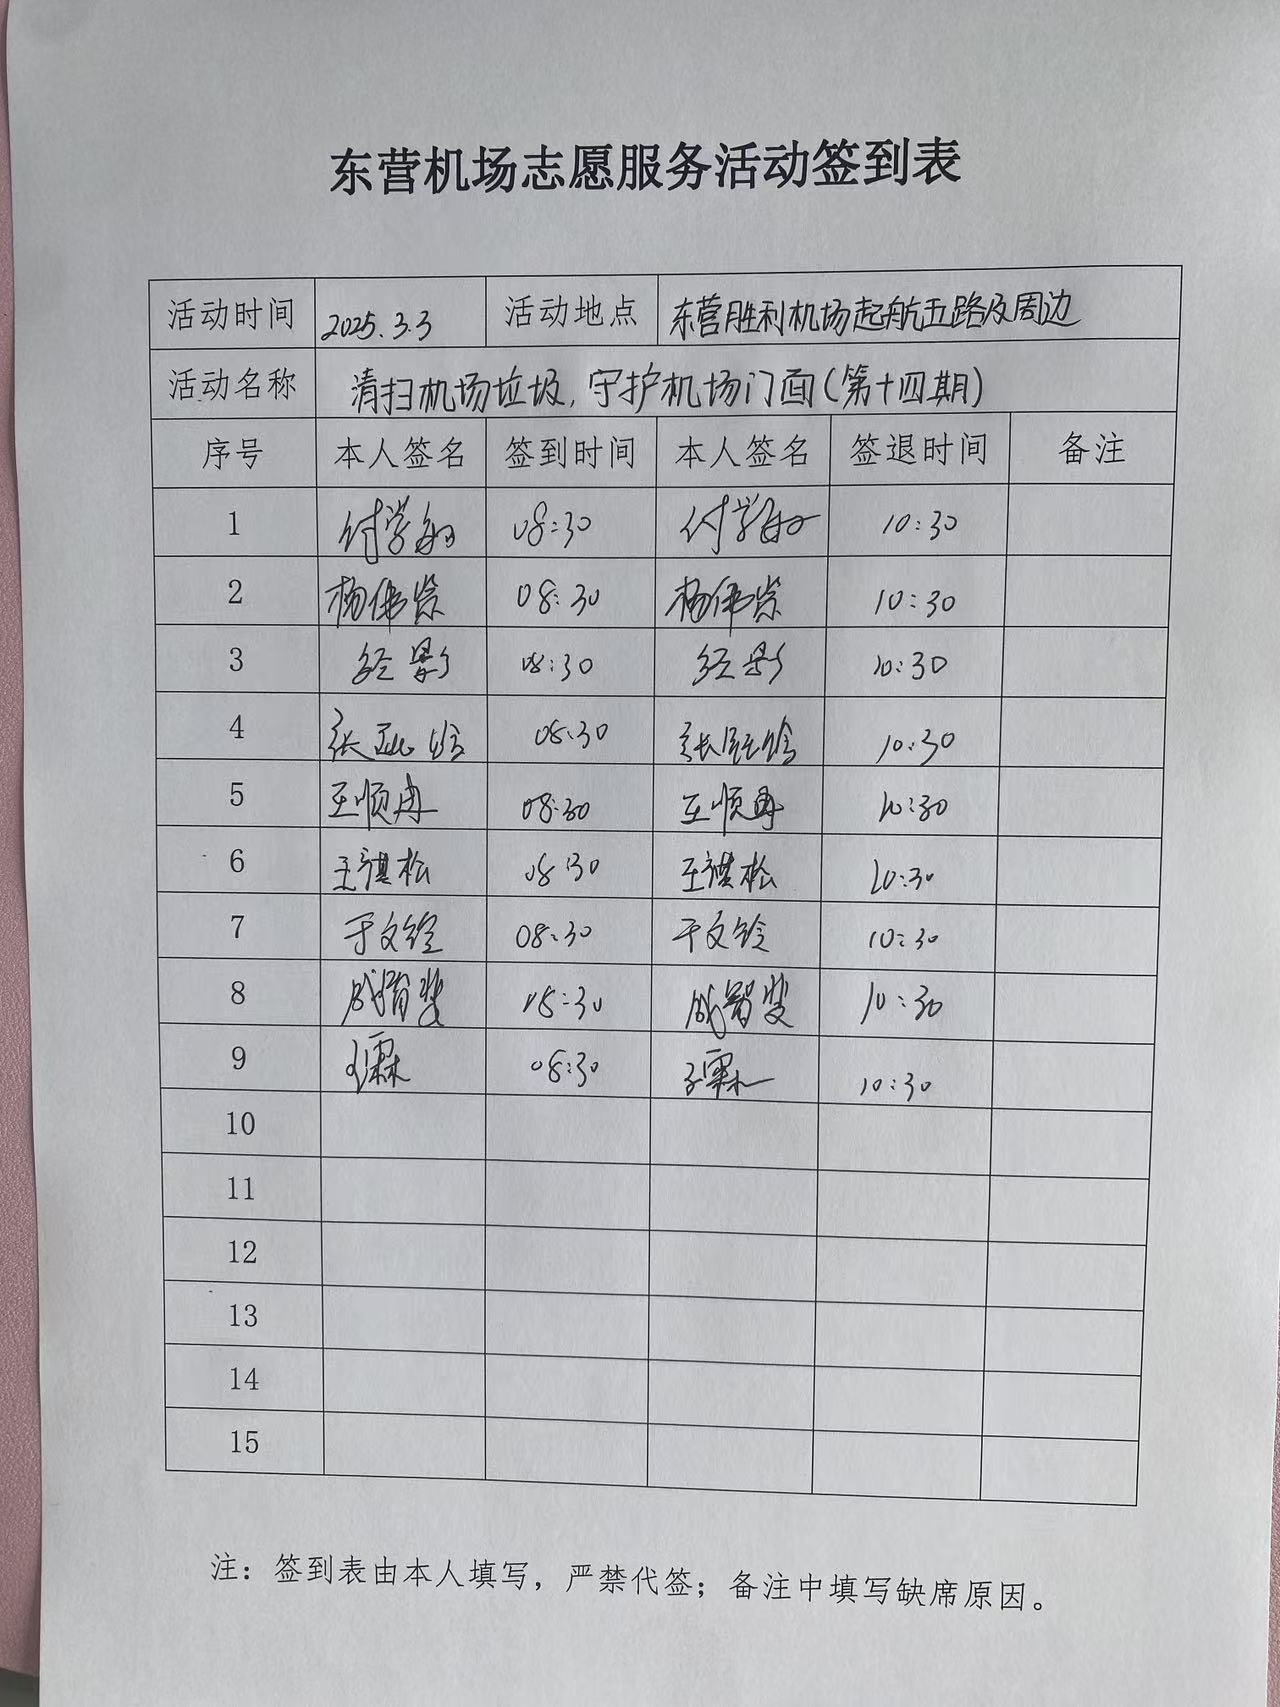 东营机场志愿服务活动签到表
活动时间 2025.3.3 活动地点 东营胜利机场起航五路及周边
活动名称 清扫机场垃圾,守护机场门面(第十四期)
序号 本人签名 签到时间 本人签名 签退时间 备注
1 付学 08:30 付学 10:30
2 杨伟 08:30 杨伟 10:30
3 经影 08:30 经影 10:30
4 张 08:30 张 10:30
5 王顺冉 08:30 王顺冉 10:30
6 王祺松 08:30 王祺松 10:30
7 于文 08:30 于文 10:30
8 08:30 10:30
9 王霖 08:30 王霖 10:30
10
11
12
13
14
15
注：签到表由本人填写，严禁代签；备注中填写缺席原因。